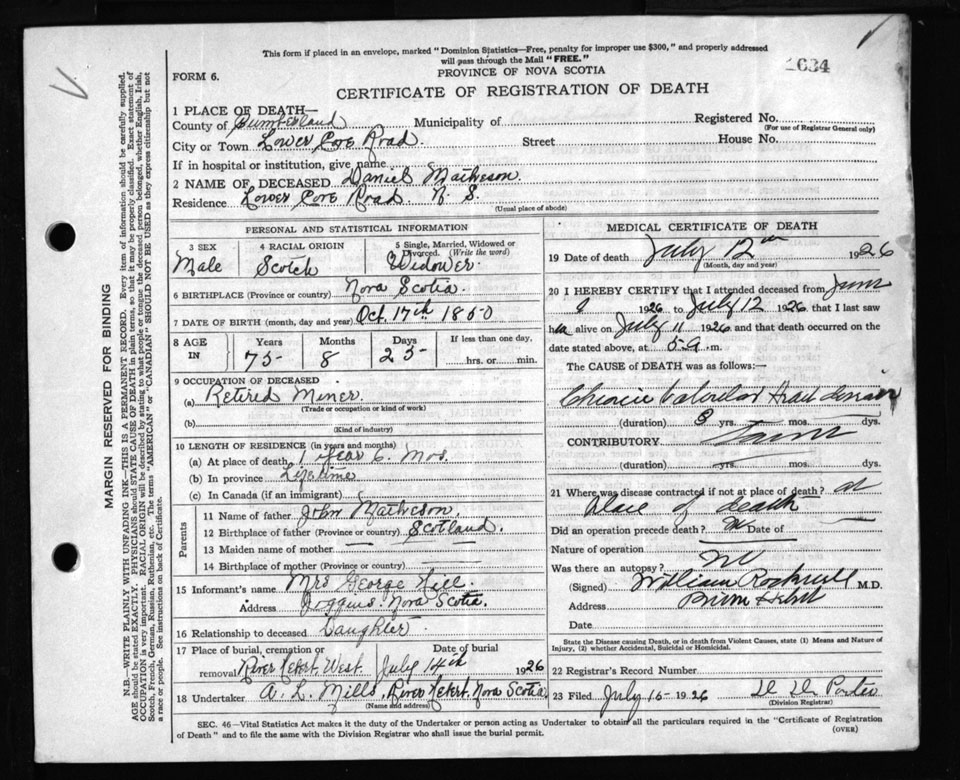 This form if placed in an envelope, marked "Dominion Statistics—Free, penalty for improper use $300," and properly addressed
will pass through the Mail "FREE."
PROVINCE OF NOVA SCOTIA
FORM 6.
1634
CERTIFICATE OF REGISTRATION OF DEATH
1 PLACE OF DEATH—
County of Cumberland Municipality of Registered No.
(For use of Registrar General only)
City or Town Lower Cove Road. Street House No.
If in hospital or institution, give name
2 NAME OF DECEASED Daniel Matheson.
Residence Lower Cove Road. N. S.
(Usual place of abode)
PERSONAL AND STATISTICAL INFORMATION
3 SEX 4 RACIAL ORIGIN 5 Single, Married, Widowed or Divorced. (Write the word)
Male Scotch Widower.
6 BIRTHPLACE (Province or country) Nova Scotia.
7 DATE OF BIRTH (month, day and year) Oct. 17th 1850
8 AGE IN Years Months Days If less than one day.
75 8 25 hrs. or min.
9 OCCUPATION OF DECEASED
(a) Retired Miner.
(Trade or occupation or kind of work)
(b)
(Kind of industry)
10 LENGTH OF RESIDENCE (in years and months)
(a) At place of death 1 year 6. Mos.
(b) In province Lifetime
(c) In Canada (if an immigrant)
Parents
11 Name of father John Matheson.
12 Birthplace of father (Province or country) Scotland.
13 Maiden name of mother —
14 Birthplace of mother (Province or country) —
15 Informant's name Mrs George Hill.
Address Joggins. Nova Scotia.
16 Relationship to deceased Daughter.
17 Place of burial, cremation or removal Date of burial
River Hebert. West. July 14th 1926
18 Undertaker A. L. Mills. River Hebert. Nova Scotia
(Name and address)
MEDICAL CERTIFICATE OF DEATH
19 Date of death July 12th 1926
(Month, day and year)
20 I HEREBY CERTIFY that I attended deceased from June
1926 to July 12 1926 that I last saw
h alive on July 11 1926 and that death occurred on the
date stated above, at 5 a. m.
The CAUSE of DEATH was as follows:—
Chronic Valvular Heart
(duration) yrs. mos. dys.
CONTRIBUTORY
(duration) yrs. mos. dys.
21 Where was disease contracted if not at place of death? at
Place of death
Did an operation precede death? No Date of
Nature of operation
Was there an autopsy? No
(Signed) William Rockwell M.D.
Address River Hebert
Date
State the Disease causing Death, or in death from Violent Causes, state (1) Means and Nature of
Injury, (2) whether Accidental, Suicidal or Homicidal.
22 Registrar's Record Number
23 Filed July 16 - 1926 Porter
(Division Registrar)
SEC. 46—Vital Statistics Act makes it the duty of the Undertaker or person acting as Undertaker to obtain all the particulars required in the "Certificate of Registration
of Death" and to file the same with the Division Registrar who shall issue the burial permit.
(OVER)
MARGIN RESERVED FOR BINDING
N.B.—WRITE PLAINLY WITH UNFADING INK—THIS IS A PERMANENT RECORD. Every item of information should be carefully supplied.
AGE should be stated EXACTLY. PHYSICIANS should STATE CAUSE OF DEATH in plain terms, so that it may be properly classified. Exact statement of
OCCUPATION is very important. RACIAL ORIGIN will be described by stating to what people or tongue the deceased person belonged, whether English, Irish,
Scotch, French, German, Russian, Ruthenian, etc. The terms "AMERICAN" or "CANADIAN" SHOULD NOT BE USED as they express citizenship but not
a race or people. See instructions on back of Certificate.